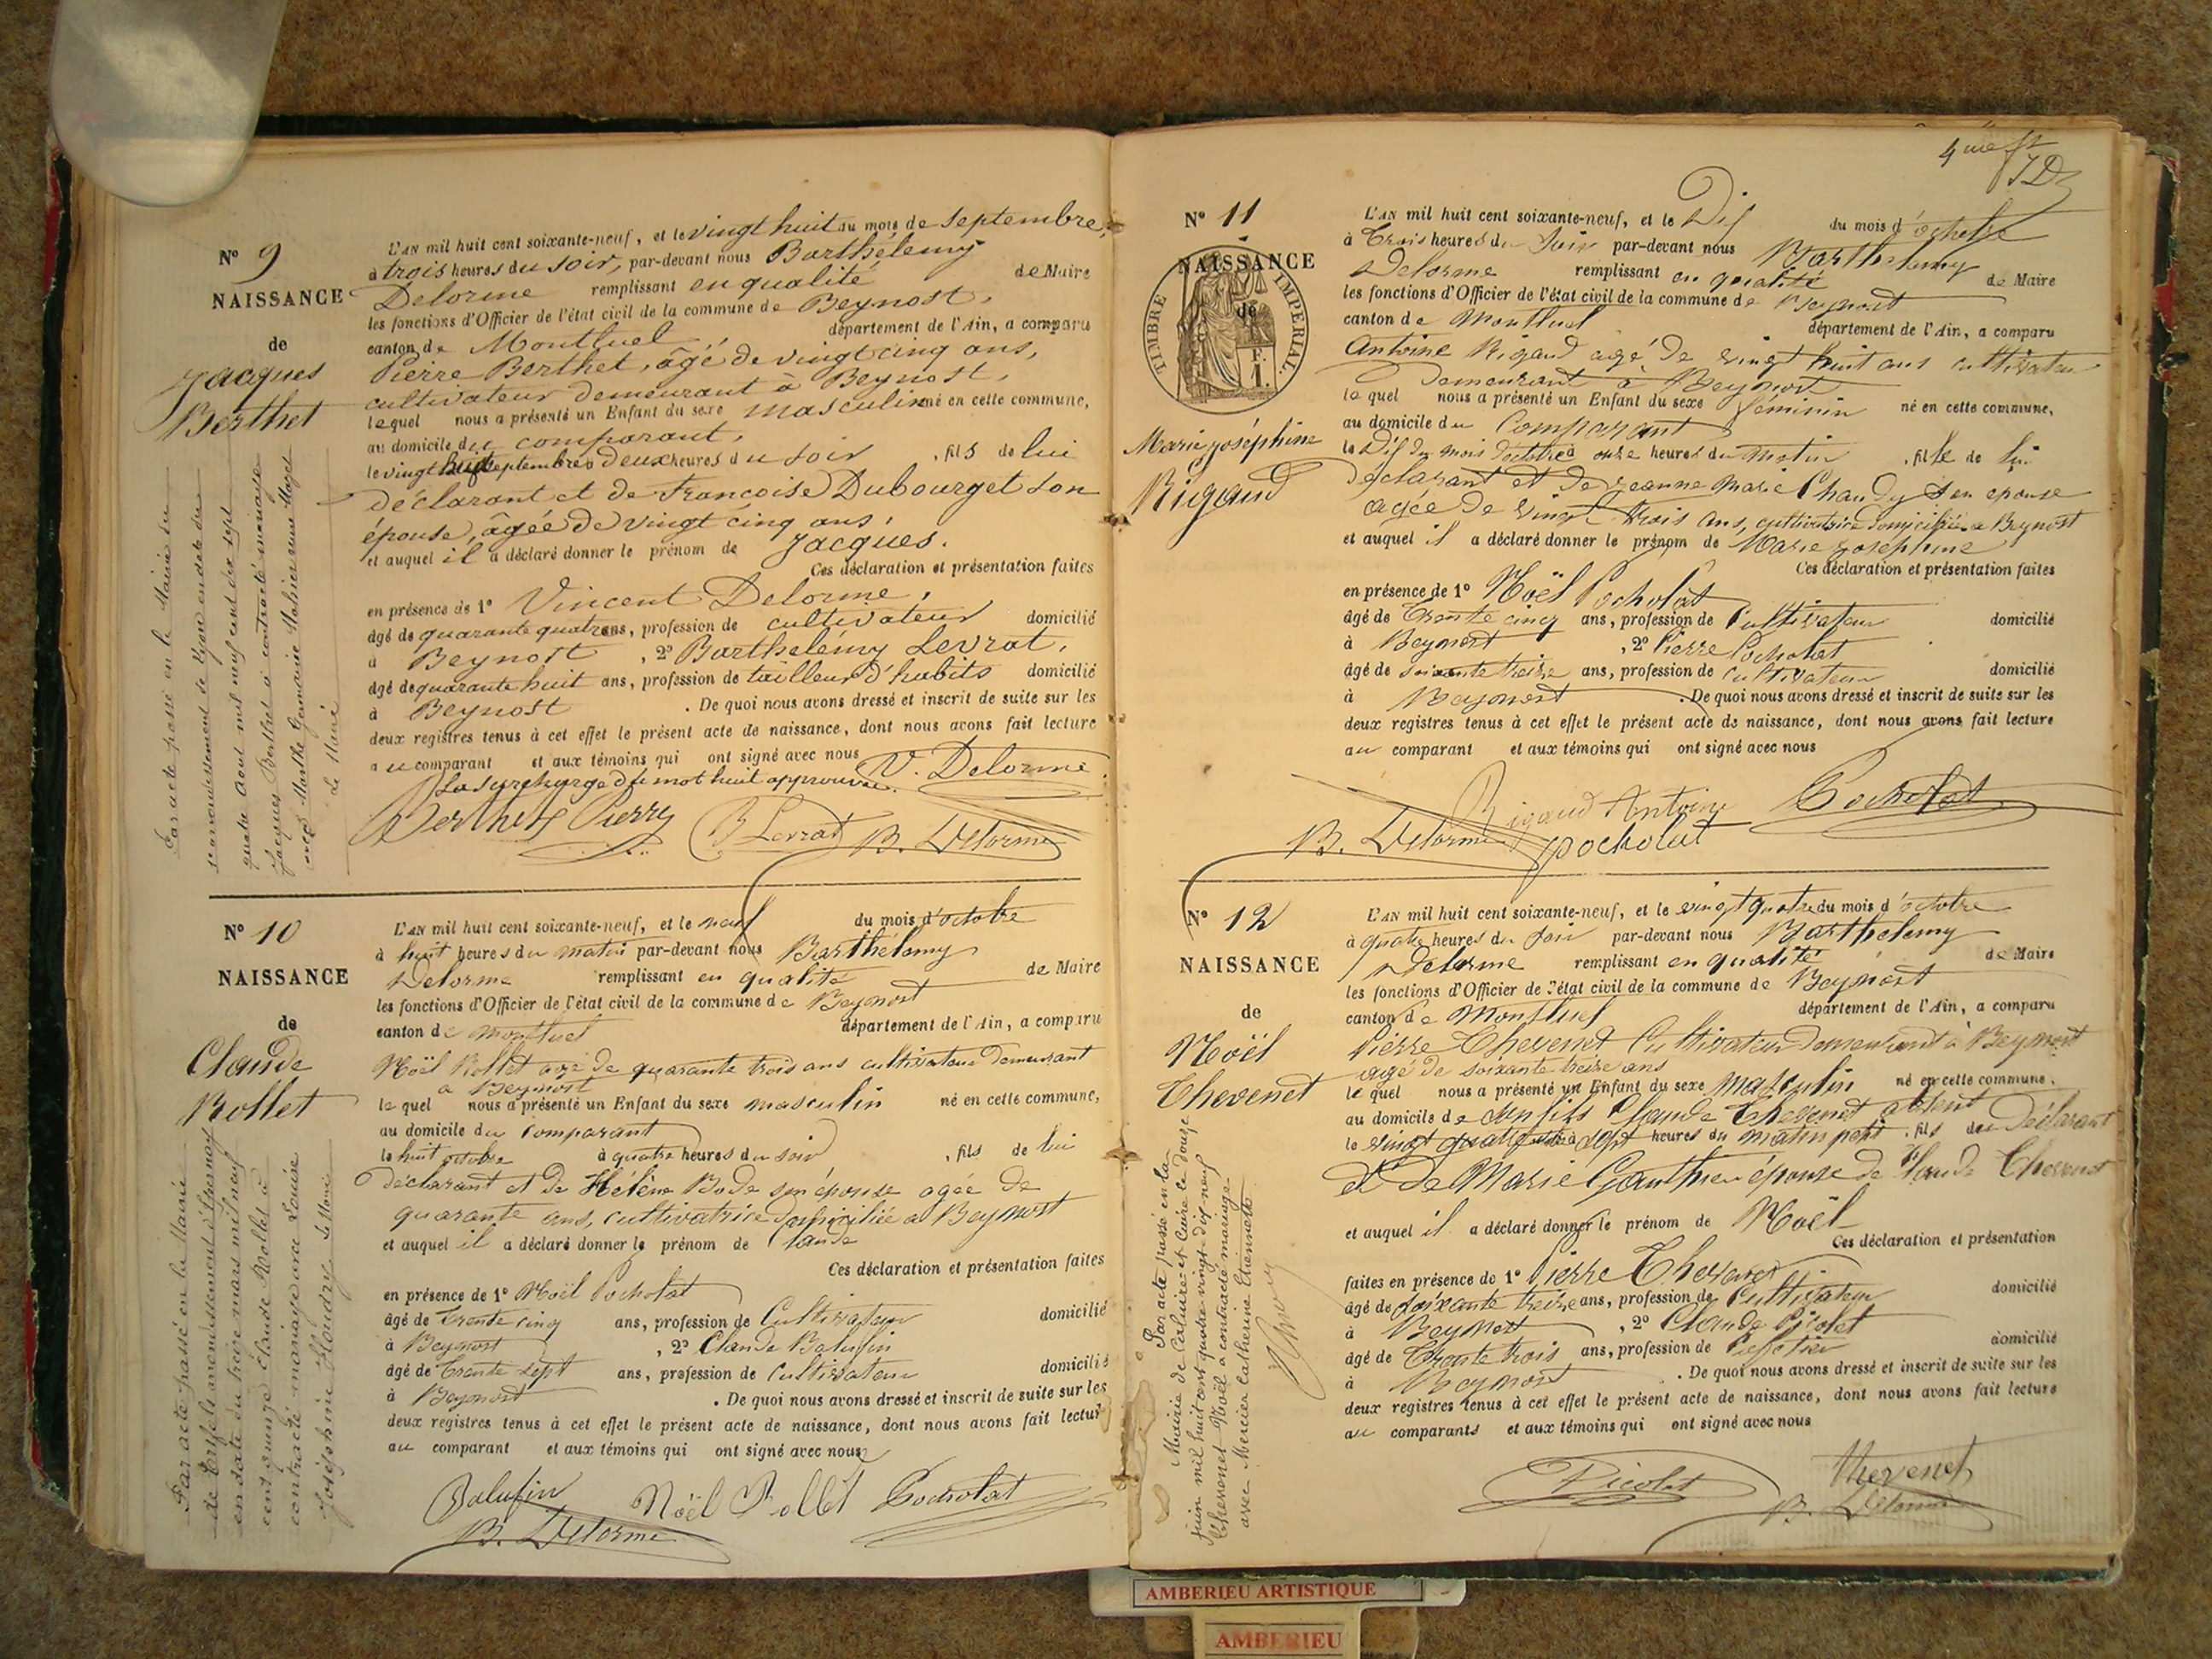 N° 9
NAISSANCE
de
Jacques
Berthet
L'AN mil huit cent soixante-neuf, et le vingt huit du mois de Septembre,
à trois heures du soir, par-devant nous Barthélemy
Delorme remplissant en qualité de Maire
les fonctions d'Officier de l'état civil de la commune de Beynost,
canton de Montluel, département de l'Ain, a comparu
Pierre Berthet, âgé de vingt cinq ans,
cultivateur demeurant à Beynost,
lequel nous a présenté un Enfant du sexe masculin né en cette commune,
au domicile du comparant,
le vingt huit septembre à deux heures du soir, fils de lui
déclarant et de Francoise Dubourget son
épouse, âgée de vingt cinq ans,
et auquel il a déclaré donner le prénom de Jacques.
Ces déclaration et présentation faites
en présence de 1° Vincent Delorme,
âgé de quarante quatre ans, profession de cultivateur domicilié
à Beynost, 2° Barthelémy Levrat,
âgé de quarante huit ans, profession de tailleur d'habits domicilié
à Beynost. De quoi nous avons dressé et inscrit de suite sur les
deux registres tenus à cet effet le présent acte de naissance, dont nous avons fait lecture
au comparant et aux témoins qui ont signé avec nous
La surcharge du mot huit approuvée. V. Delorme
Berthet Pierre B Levrat B. Delorme
Par acte passé en la Mairie du
arrondissement de Lyon en date du
quatre Aout mil neuf cent dix sept
Jacques Berthet a contracté mariage
avec Marthe Germaine
Le Maire
N° 10
NAISSANCE
de
Claude
Rollet
L'AN mil huit cent soixante-neuf, et le neuf du mois d'octobre
à huit heures du matin par-devant nous Barthélemy
Delorme remplissant en qualité de Maire
les fonctions d'Officier de l'état civil de la commune de Beynost
canton de Montluel département de l'Ain, a comparu
Noël Rollet agé de quarante trois ans cultivateur demeurant
a Beynost
lequel nous a présenté un Enfant du sexe masculin né en cette commune,
au domicile du comparant
le huit octobre à quatre heures du soir, fils de lui
déclarant et de Hélène Bode son épouse agée de
quarante ans, cultivatrice domiciliée a Beynost
et auquel il a déclaré donner le prénom de Claude
Ces déclaration et présentation faites
en présence de 1° Noël Pocholat
âgé de Trente cinq ans, profession de Cultivateur domicilié
à Beynost, 2° Claude Balufin
âgé de Trente sept ans, profession de Cultivateur domicilié
à Beynost. De quoi nous avons dressé et inscrit de suite sur les
deux registres tenus à cet effet le présent acte de naissance, dont nous avons fait lecture
au comparant et aux témoins qui ont signé avec nous
Balufin Noël Rollet Pocholat
B. Delorme
Par acte passé en la Mairie
arrondissement d'Epernay
en date du treize mars mil neuf
cent Claude Rollet a
contracté mariage avec Louise
Joséphine Houdry Le Maire
4me ft
JD
N° 11
NAISSANCE
de
TIMBRE IMPERIAL
F. 1.
Marie joséphine
Rigaud
L'AN mil huit cent soixante-neuf, et le Dix du mois d'octobre
à Trois heures du Soir par-devant nous Barthelemy
Delorme remplissant en qualité de Maire
les fonctions d'Officier de l'état civil de la commune de Beynost
canton de Montluel département de l'Ain, a comparu
Antoine Rigaud agé de vingt huit ans cultivateur
demeurant à Beynost
lequel nous a présenté un Enfant du sexe féminin né en cette commune,
au domicile du Comparant
le Dix du mois d'octobre à onze heures du matin, fille de lui
déclarant et de jeanne Marie Chaudy son epouse
agée de vingt trois ans, cultivatrice domiciliée a Beynost
et auquel il a déclaré donner le prénom de Marie josephine
Ces déclaration et présentation faites
en présence de 1° Noël Pocholat
âgé de Trente cinq ans, profession de Cultivateur domicilié
à Beynost, 2° Pierre Pocholat
âgé de soixante treize ans, profession de cultivateur domicilié
à Beynost. De quoi nous avons dressé et inscrit de suite sur les
deux registres tenus à cet effet le présent acte de naissance, dont nous avons fait lecture
au comparant et aux témoins qui ont signé avec nous
Rigaud Antoine Pocholat
B. Delorme pocholat
N° 12
NAISSANCE
de
Noël
Thevenet
L'AN mil huit cent soixante-neuf, et le vingt quatre du mois d'octobre
à quatre heures du soir par-devant nous Barthelemy
Delorme remplissant en qualité de Maire
les fonctions d'Officier de l'état civil de la commune de Beynost
canton de Montluel département de l'Ain, a comparu
Pierre Thevenet Cultivateur demeurant à Beynost
agé de soixante treize ans
lequel nous a présenté un Enfant du sexe masculin né en cette commune,
au domicile de son fils Claude Thevenet absent
le vingt quatre à sept heures du matin petit, fils du déclarant
et de Marie Gauthier épouse de Claude Thevenet
et auquel il a déclaré donner le prénom de Noël
Ces déclaration et présentation
faites en présence de 1° Pierre Thevenet
âgé de soixante treize ans, profession de Cultivateur domicilié
à Beynost, 2° Claude Picolet
âgé de Trente trois ans, profession de domicilié
à Beynost. De quoi nous avons dressé et inscrit de suite sur les
deux registres tenus à cet effet le présent acte de naissance, dont nous avons fait lecture
au comparants et aux témoins qui ont signé avec nous
Picolet Thevenet
B. Delorme
Par acte passé en la
Mairie de Caluire et Cuire le douze
juin mil huit cent quatre vingt dix-neuf
Thevenet Noël a contracté mariage
avec Mercier Catherine Etiennette
AMBERIEU ARTISTIQUE
AMBERIEU